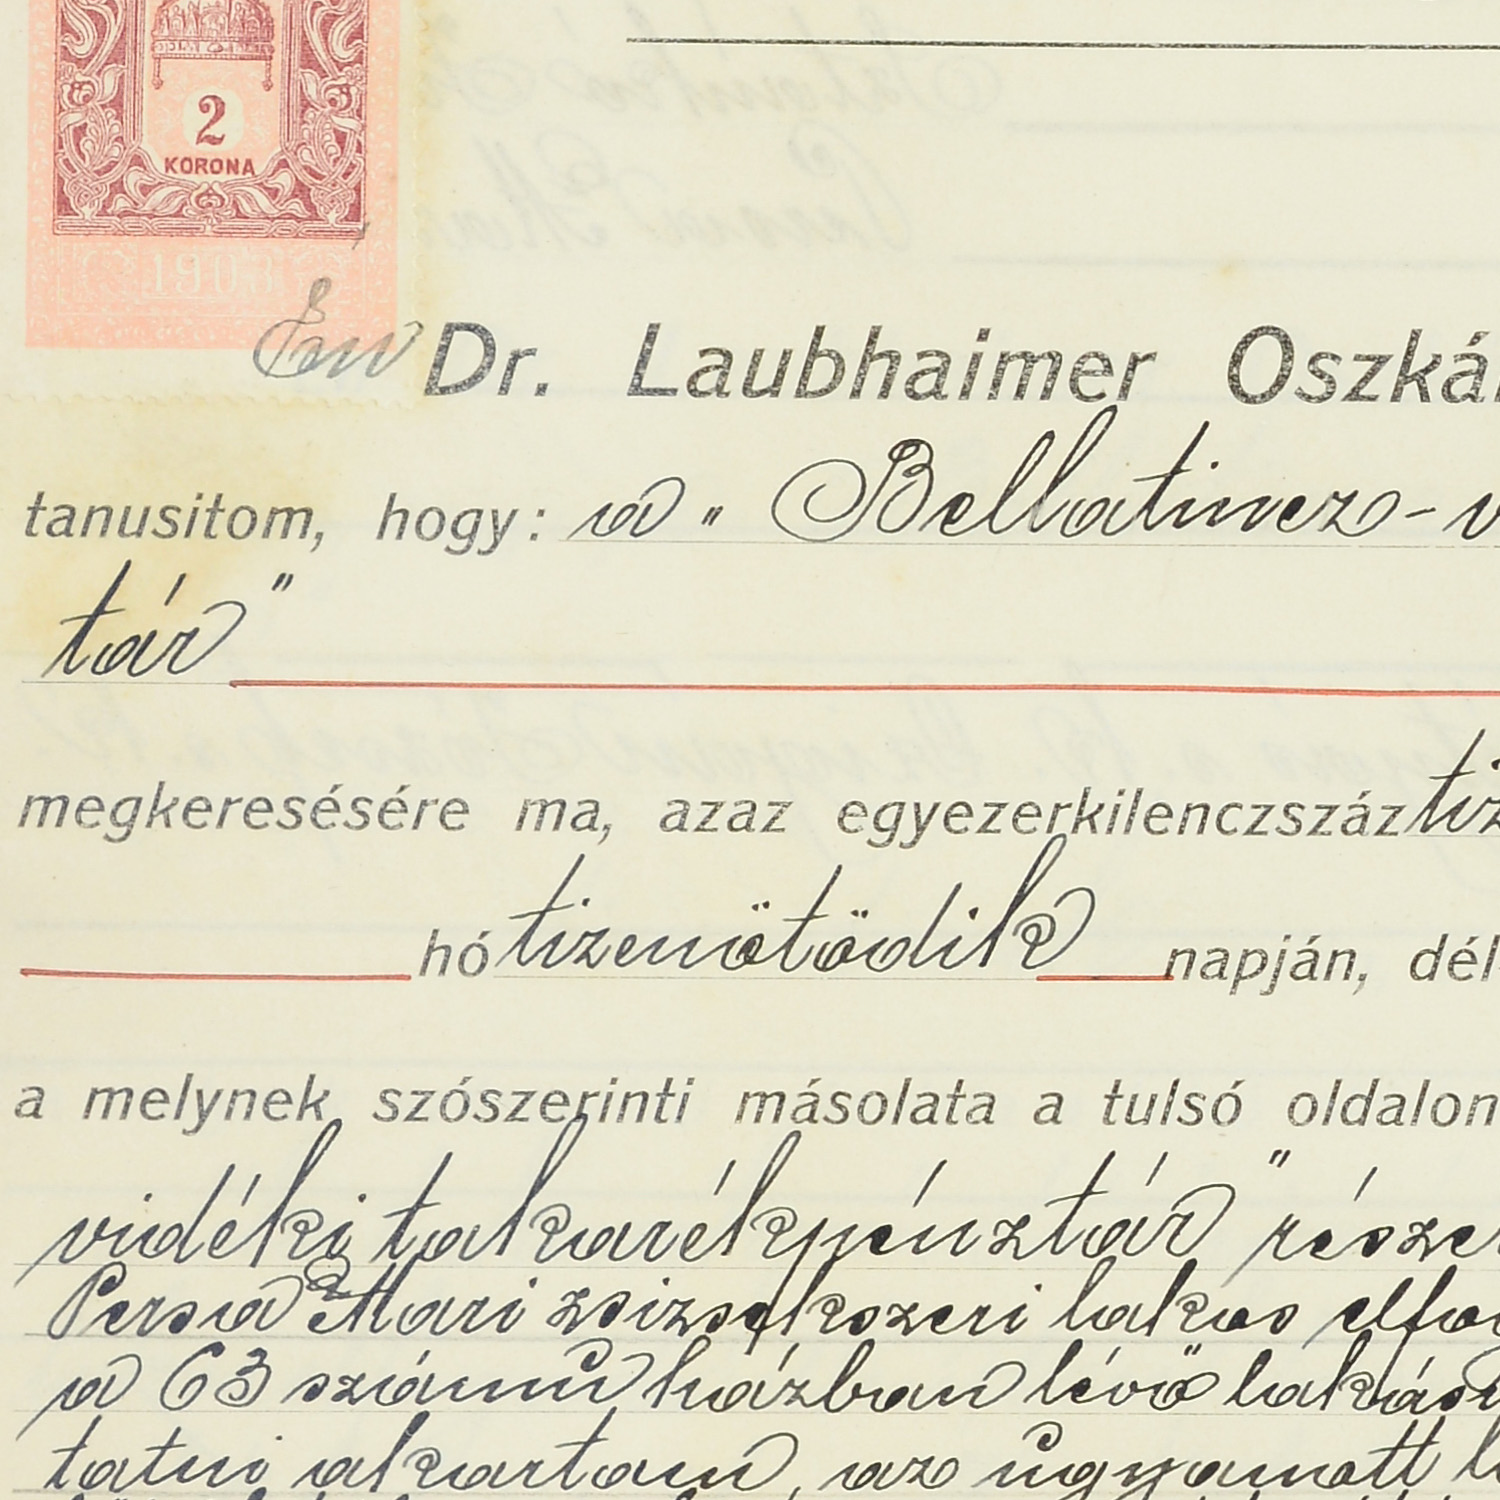 2
KORONA
1908
Én Dr. Laubhaimer Oszká
tanusitom, hogy: a „Bellatincz-v
tár"
megkeresésére ma, azaz egyezerkilenczszáztiz
hó tizenötödik napján, dél
a melynek szószerinti másolata a tulsó oldalon
vidéki takarékpénztár" részé
Persa Mari zsizsekszeri lakos elfo
a 63 számu házban lévő lakás
tatni akartam, az ugyanott l